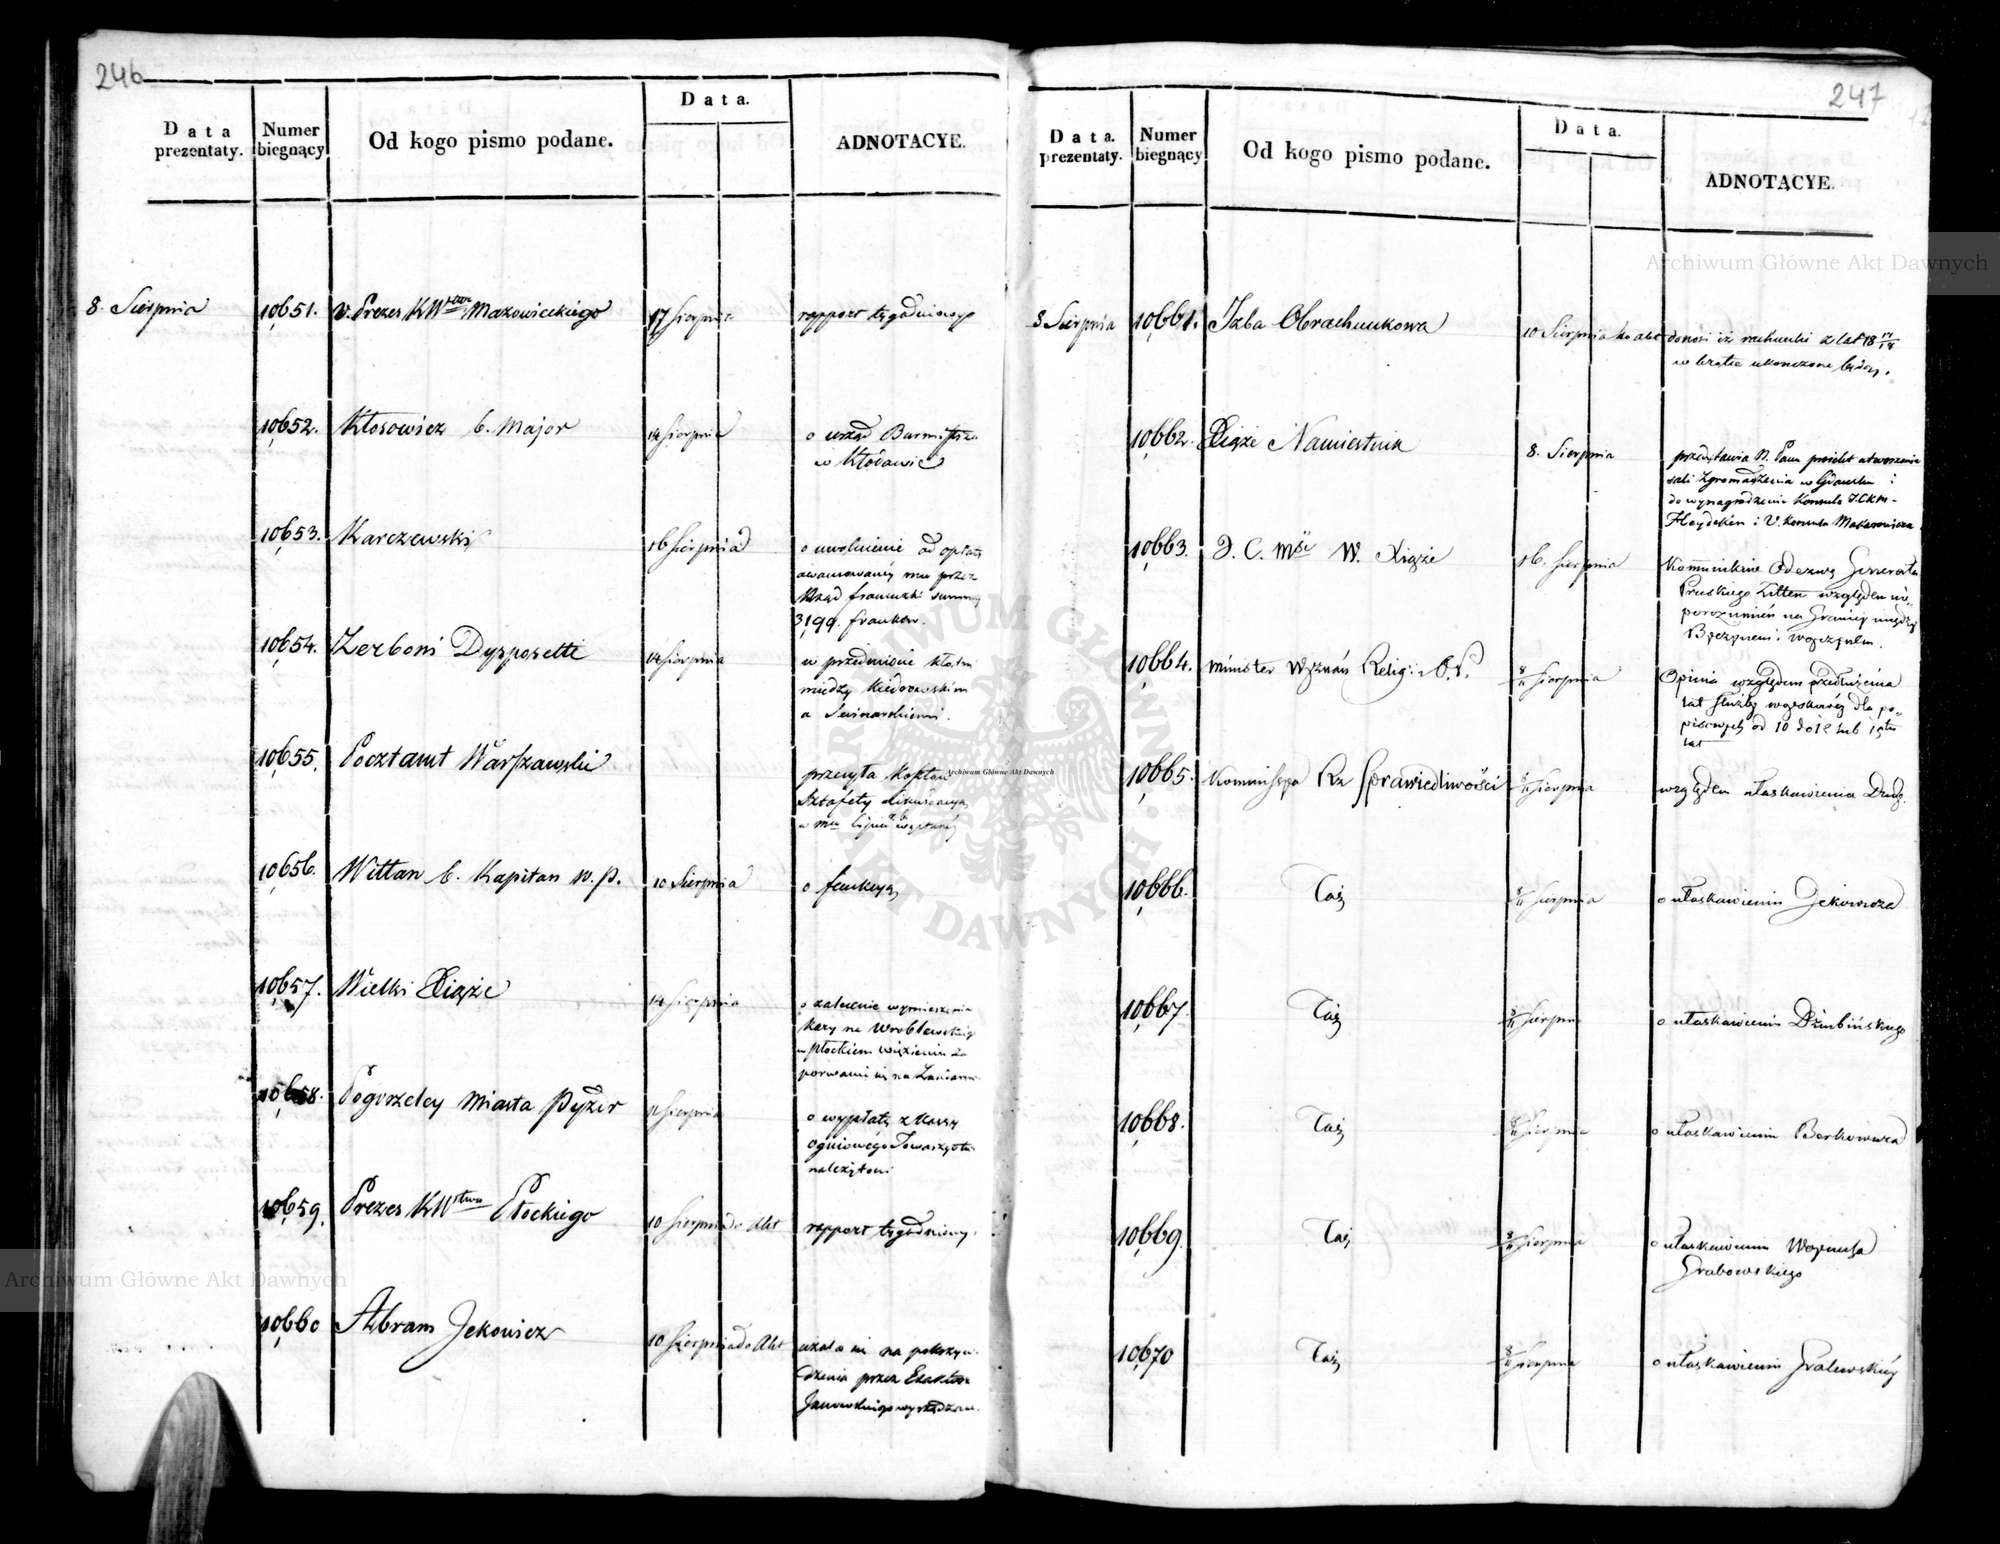 246
Data prezentaty.
Numer biegnący
Od kogo pismo podane.
Data.
ADNOTACYE.
8. Sierpnia 10651. V. Prezes KW Mazowieckiego 17 Sierpnia rapport tygodniowy
10652. Kłosowicz b. Major 14 Sierpnia o urząd Burmistrza
w Kłodawie
10653. Karczewski 16 Sierpnia o uwolnienie od opłaty
awansowanéy mu przez
Rząd francuzki summy
3199. franków.
10654. Zerboni Dysposetti 14 Sierpnia w przedmiocie kłótni
między
a
10655. Pocztamt Warszawski przesyła
Sztafety
w
10656. Wittan b. Kapitan W. P. 10 Sierpnia o funkcyą
10657. Wielki Xiąże 14 Sierpnia o zalecenie wymierzenia
kary na Wroblewskiego
w Płockiem więzieniu za
porwanie się na
10658. Pogorzelcy Miasta Pyzdr 11 Sierpnia o wypłatę z Kassy
Ogniowégo Towarzystwa
należytości
10659. Prezes KWtwa Płockiego 10 Sierpnia do Akt rapport tygodniowy.
10660 Abram Jekowicz 10 Sierpnia do Akt użala się na pokrzyw-
dzenia przez
Janowskiego wyrządzone.
247
Data. prezentaty.
Numer biegnący
Od kogo pismo podane.
Data.
ADNOTACYE.
8 Sierpnia 10661. Izba Obrachunkowa 10 Sierpnia do akt donosi iż rachunki z lat 18 17/18
w krótce ukończone będą.
10662. Xiąże Namiestnik 8. Sierpnia przedstawia N. Panu projekt utworzenia
sali Zgromadzenia w Gdańsku i
do wynagrodzenia Konsula
Heydeken i V. Konsula Makarowicza
10663. J. C. Mści W. Xiąże 16. Sierpnia Kommunikuie Odezwę Generała
Pruskiego Zitten względem nie-
porozumień na Granicy między
10664. Minister Wyznań Relig: i O. P. 8/11 Sierpnia Opinia względem przedłużenia
lat służby woyskowéy dla po-
pisowych od 10 do 12 lub
lat
10665. Kommissya Rz Sprawiedliwości 8/11 Sierpnia względem ułaskawienia
10666. Taż 8/11 Sierpnia o ułaskawieniu Jekowicza
10667. Taż 8/11 Sierpnia o ułaskawieniu Dziubińskiego
10668. Taż 8/11 Sierpnia o ułaskawieniu Berkowicza
10669. Taż 8/11 Sierpnia o ułaskawieniu
Grabowskiego
10670 Taż 8/11 Sierpnia o ułaskawieniu Gralewskiéy
Archiwum Główne Akt Dawnych
Archiwum Główne Akt Dawnych
Archiwum Główne Akt Dawnych
ARCHIWUM GŁÓWNE AKT DAWNYCH